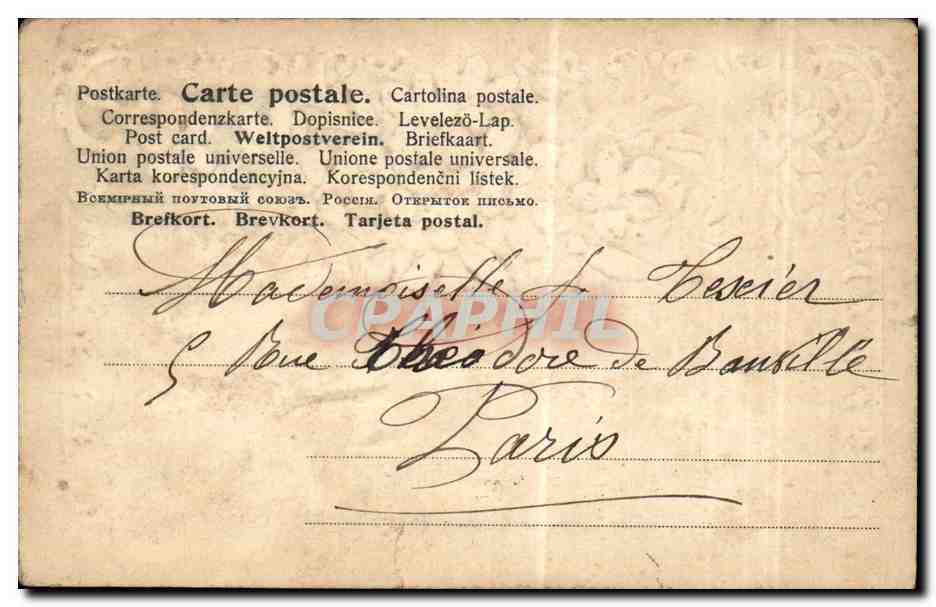 Postkarte. Carte postale. Cartolina postale.
Correspondenzkarte. Dopisnice. Levelező-Lap.
Post card. Weltpostverein. Briefkaart.
Union postale universelle. Unione postale universale.
Karta korespondencyjna. Korespondenčni listek.
Всемірный почтовый союзъ. Россія. Открытое письмо.
Brefkort. Brevkort. Tarjeta postal.
Mademoiselle J. Texier
5 Rue Théodore de Banville
Paris
CPAPHIL